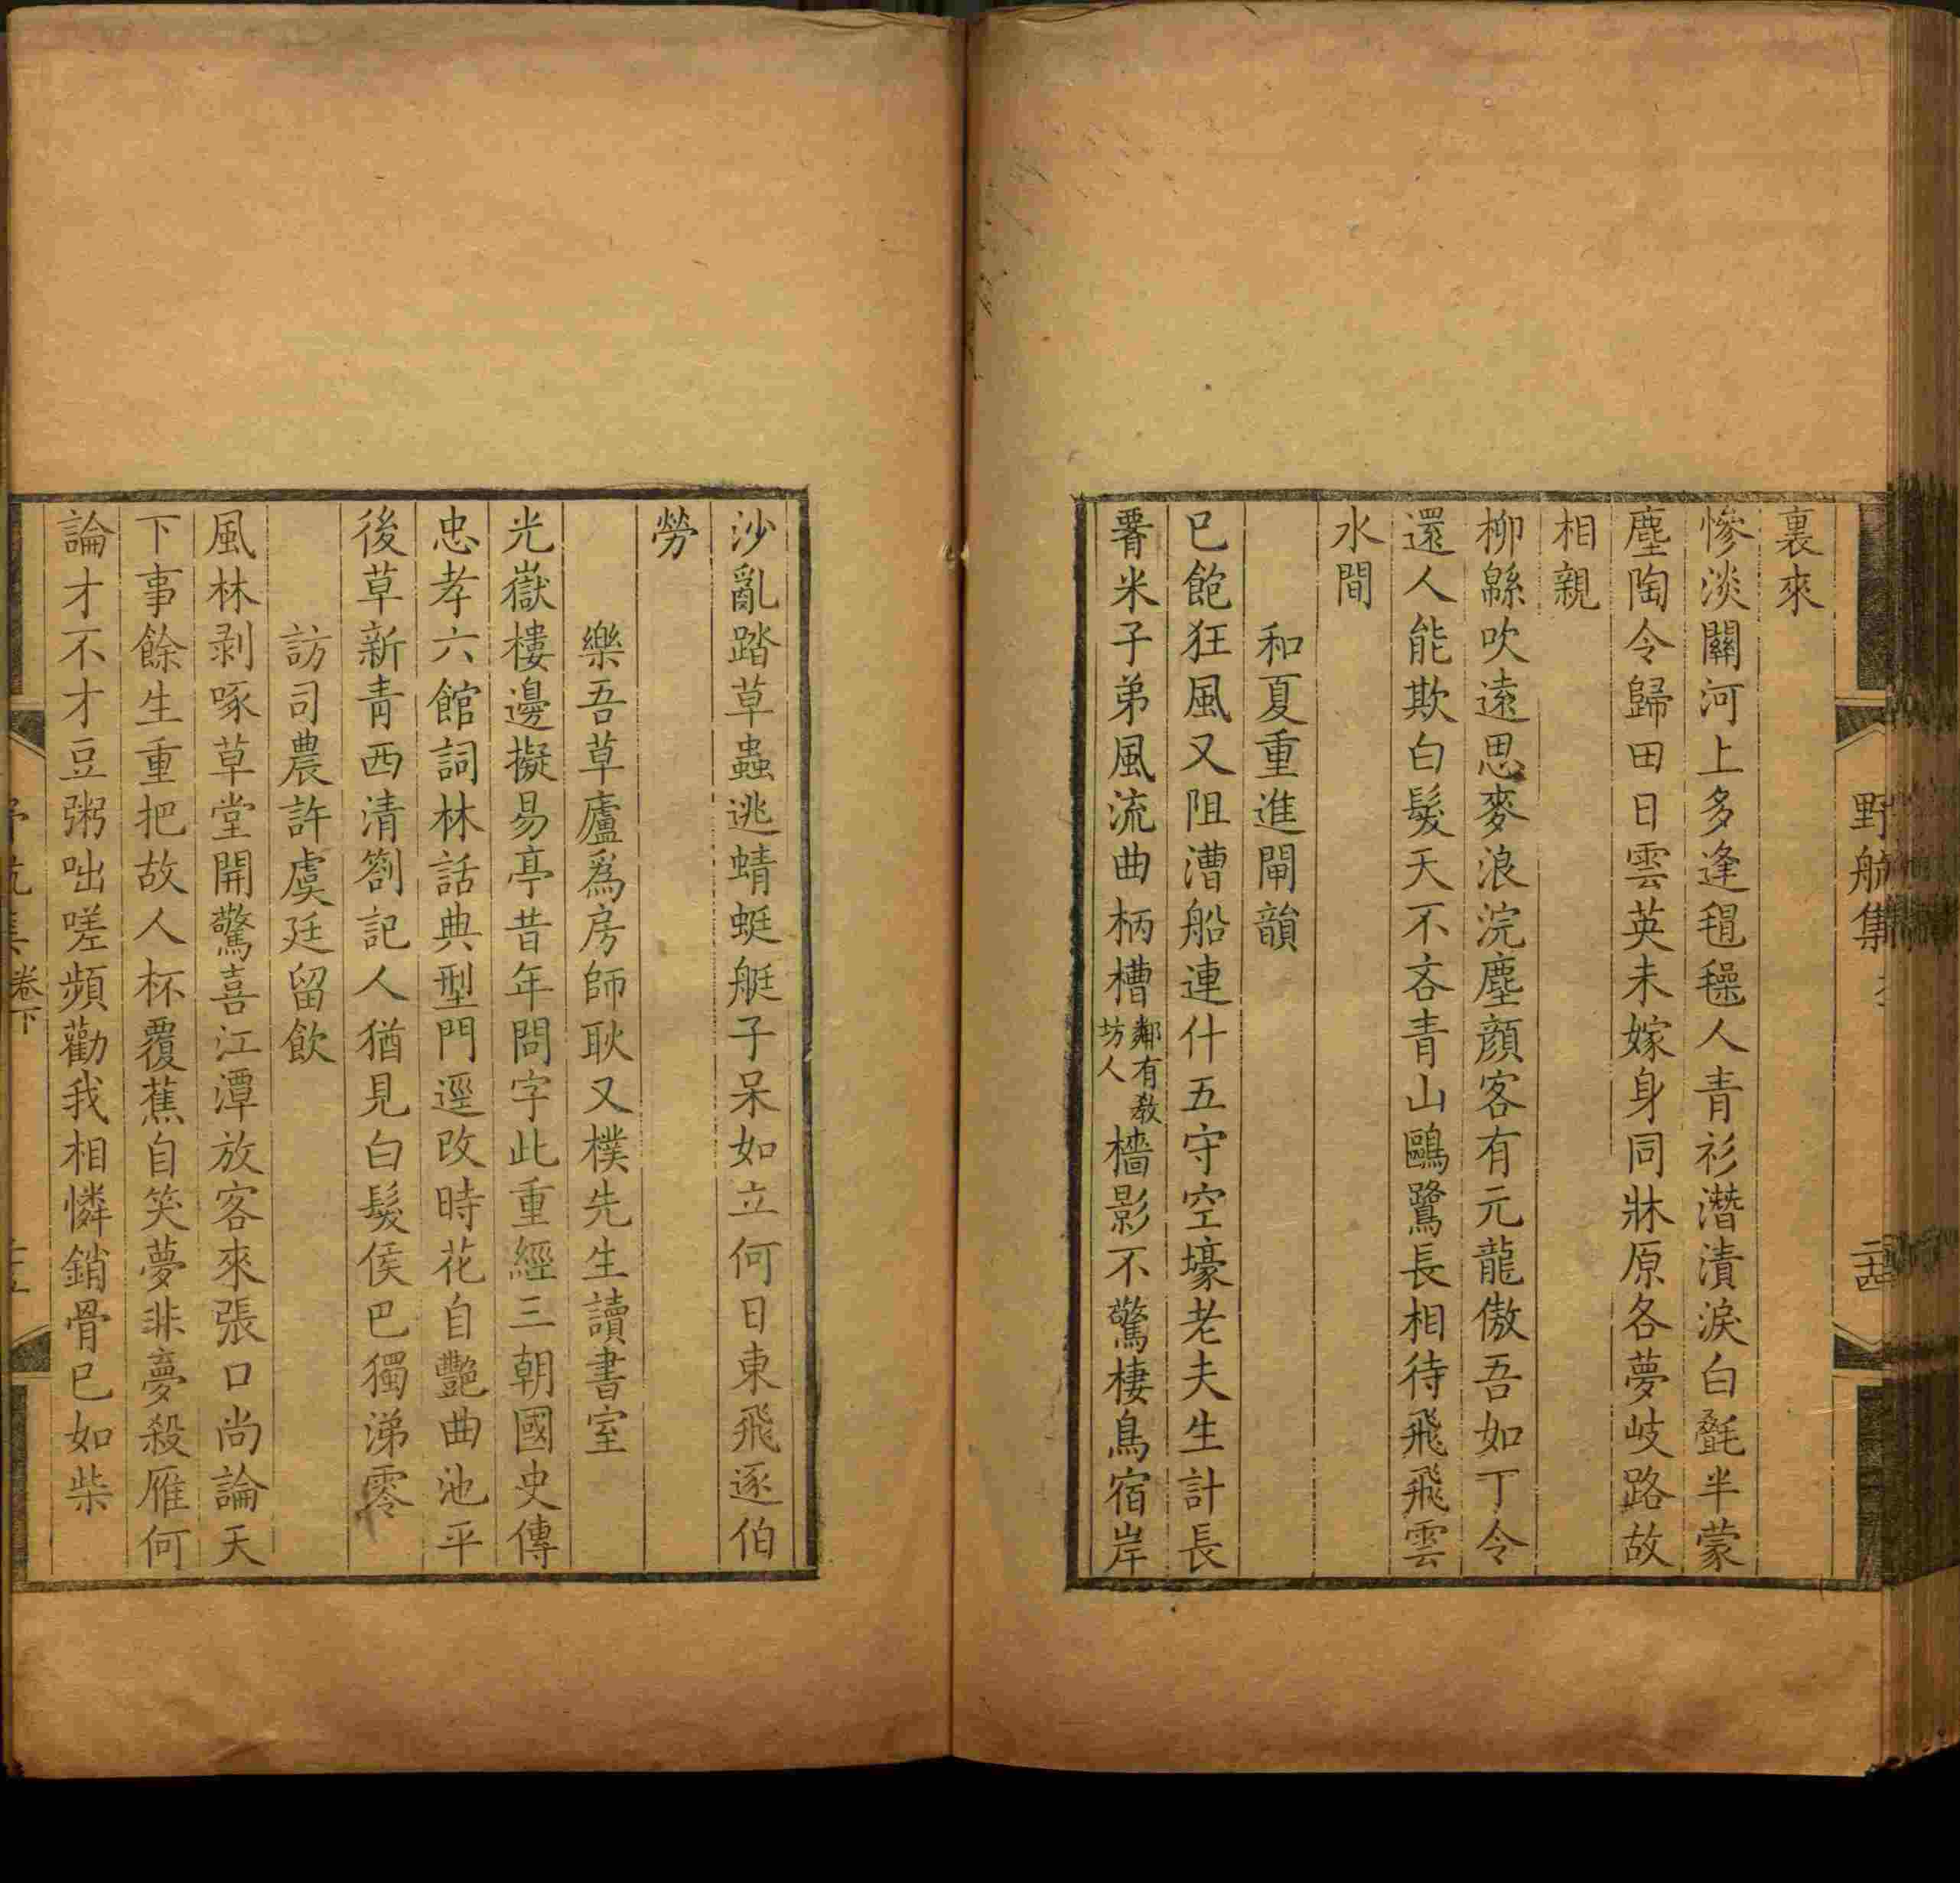 裏來
慘淡關河上多逢𣮉氉人青衫潛漬淚白㲲半蒙
塵陶令歸田日雲英未嫁身同牀原各夢岐路故
相親
柳緜吹遠思麥浪浣塵顏客有元龍傲吾如丁令
還人能欺白髮天不吝青山鷗鷺長相待飛飛雲
水間
和夏重進閘韻
已飽狂風又阻漕船連什五守空壕老夫生計長
署米子弟風流曲柄槽鄰有教坊人檣影不驚棲鳥宿岸
野航集
二四
沙亂踏草蟲逃蜻蜓艇子呆如立何日東飛逐伯
勞
樂吾草廬爲房師耿又樸先生讀書室
光嶽樓邊擬易亭昔年問字此重經三朝國史傳
忠孝六館詞林話典型門逕改時花自豔曲池平
後草新青西清劄記人猶見白髮侯巴獨涕零
訪司農許虞廷留飲
風林剥啄草堂開驚喜江潭放客來張口尚論天
下事餘生重把故人杯覆蕉自笑夢非夢殺雁何
論才不才豆粥咄嗟頻勸我相憐銷骨已如柴
卷下